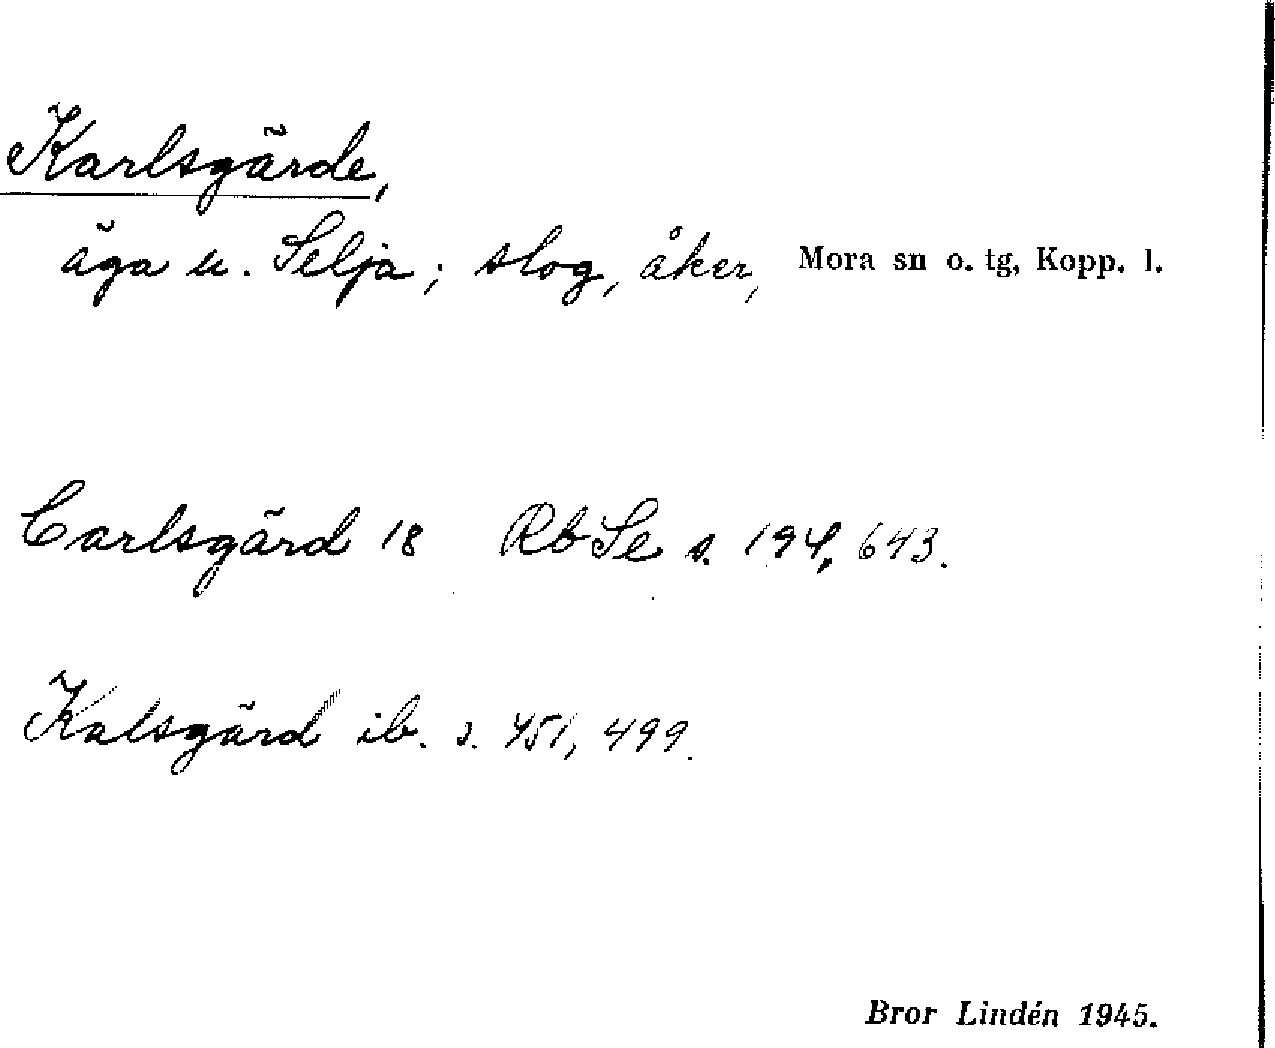 Karlsgärde,
äga u. Selja; slog, åker, Mora sn o. tg, Kopp. l.
Carlsgärd 18 Rb Se s. 194, 643.
Kalsgärd ib. s. 451, 499.
Bror Lindén 1945.